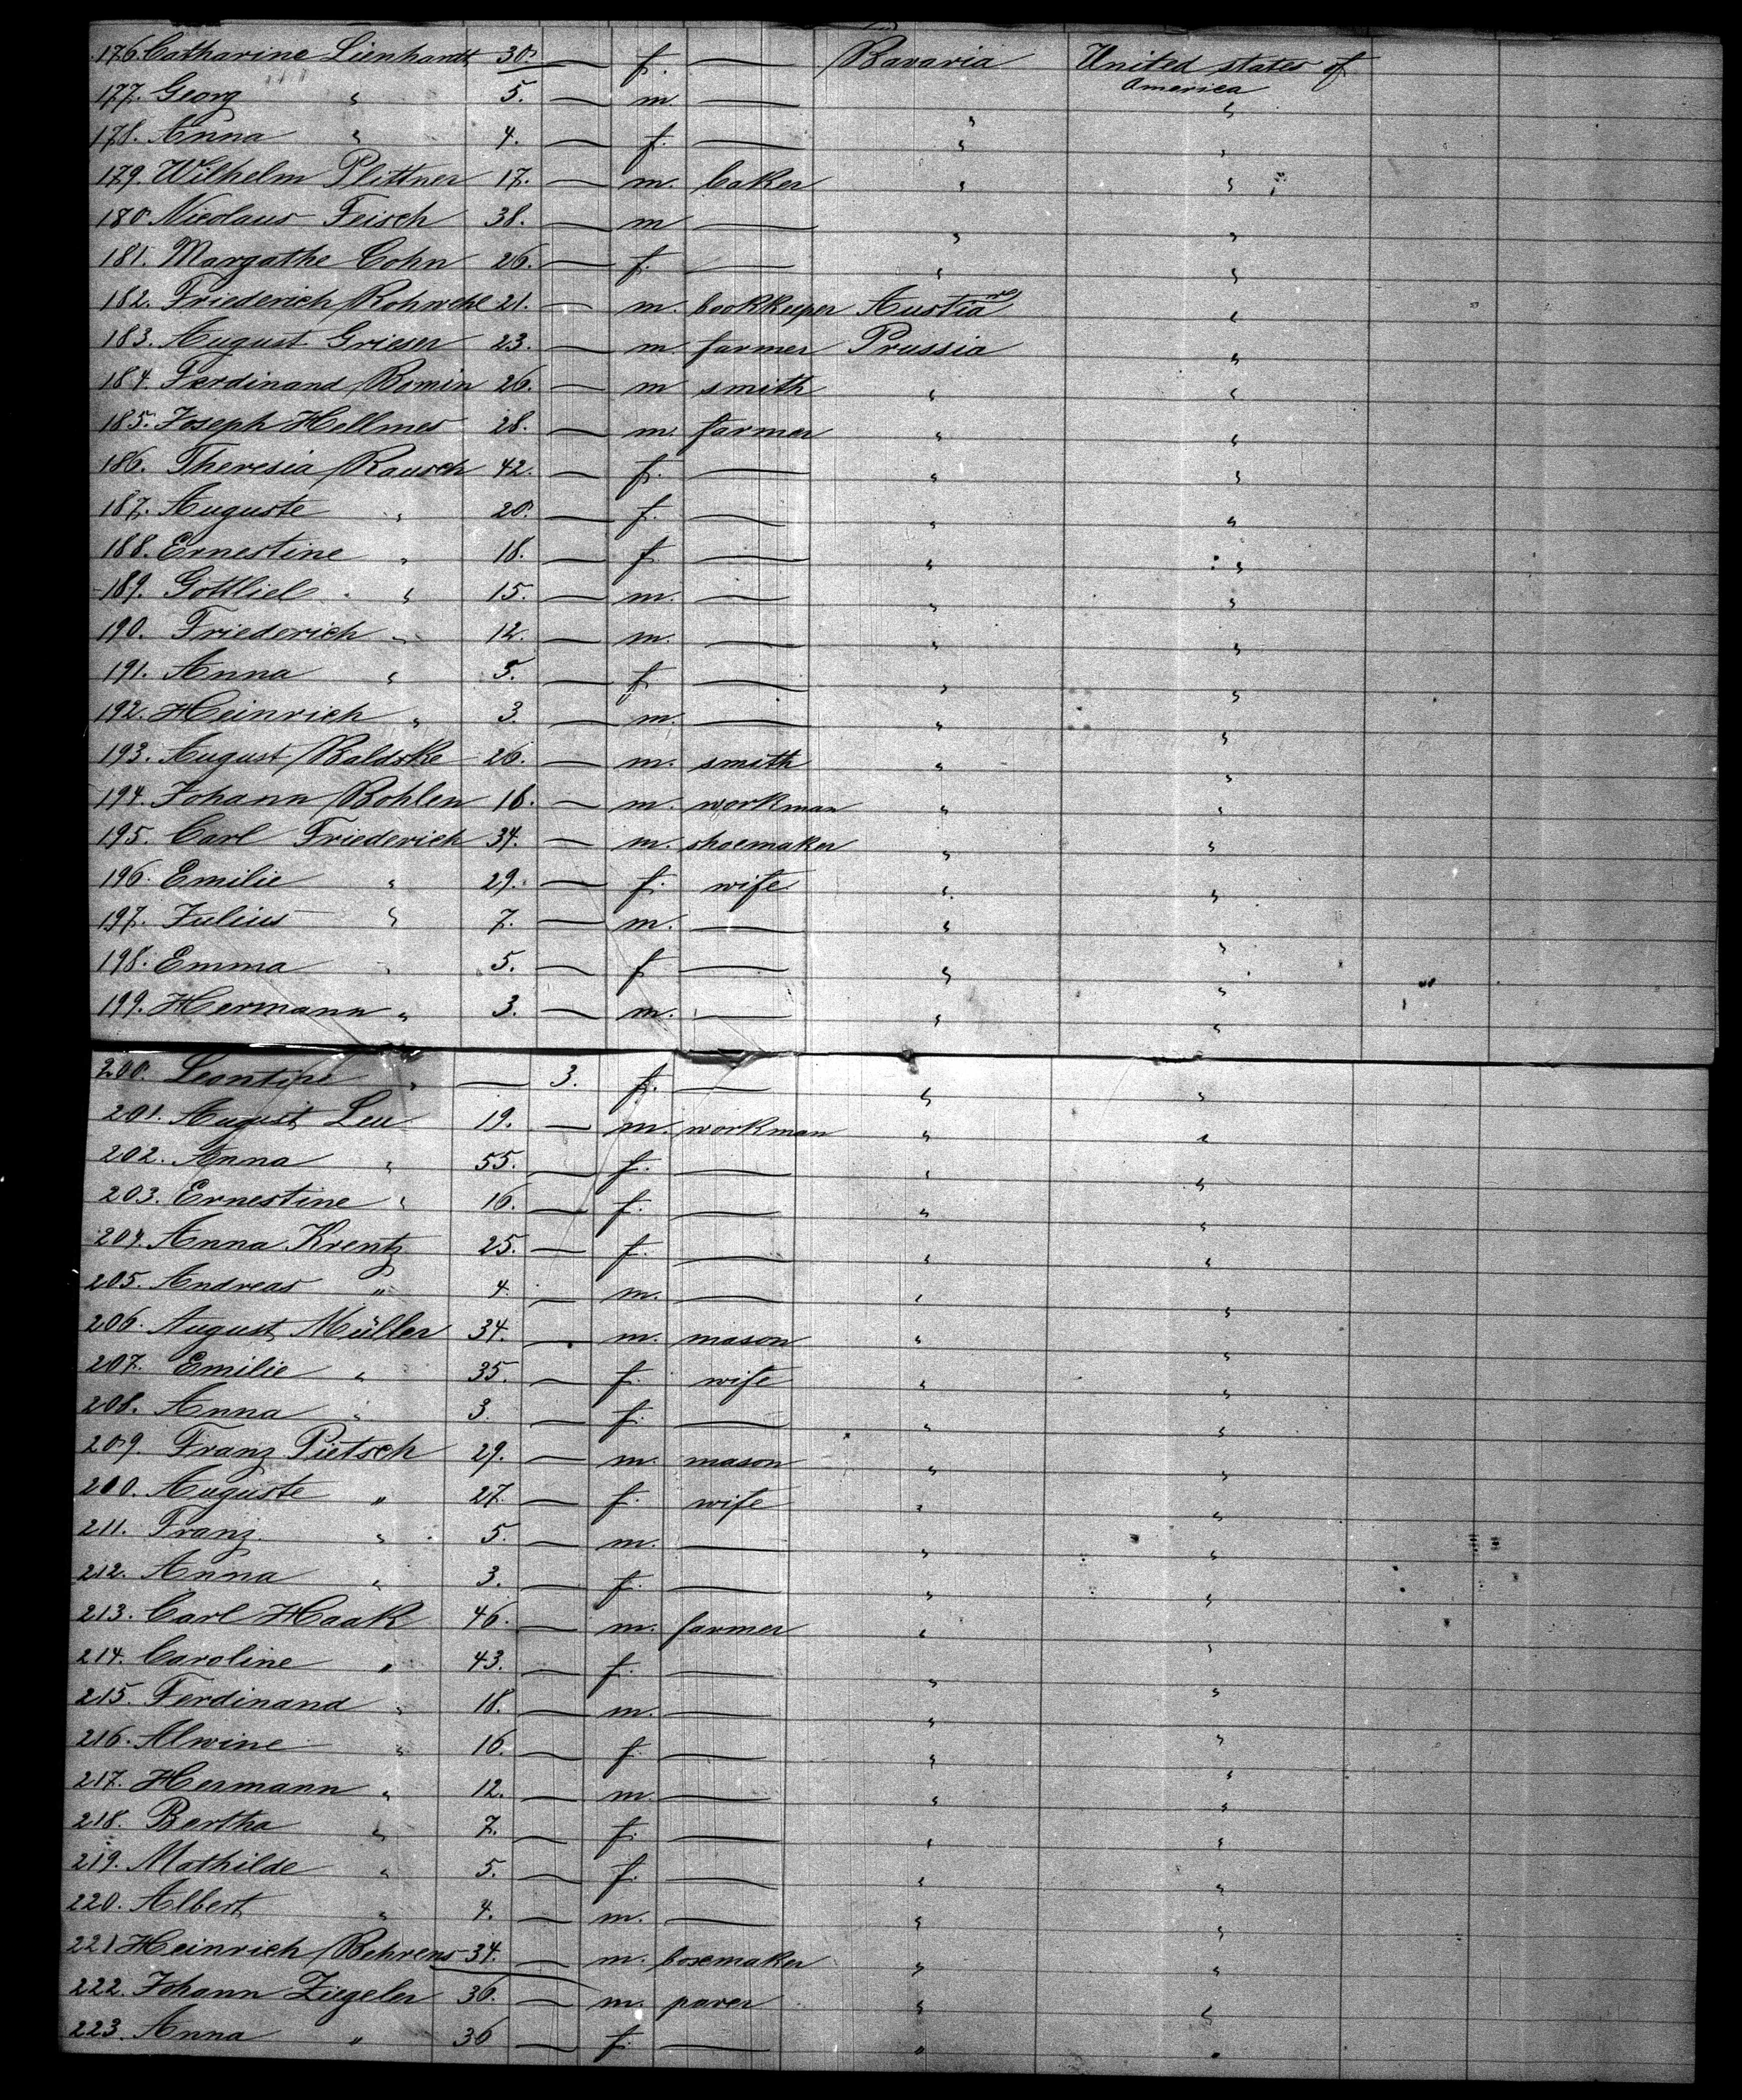 176. Catharine Lienhardt 30. — f. — Bavaria United states of America
177. Georg " 5. — m. — " "
178. Anna " 4. — f. — " "
179. Wilhelm Plittner 17. — m. baker " "
180. Nicolaus Feisch 38. — m — " "
181. Margathe Cohn 26. — f. — " "
182. Friederich Rohwehl 21. — m. bookkeeper Austia "
183. August Grieser 23. — m. farmer Prussia "
184. Ferdinand Romin 26. — m smith " "
185. Joseph Hellmes 28. — m. farmer " "
186. Theresia Rausch 42. — f. — " "
187. Auguste " 20. — f. — " "
188. Ernestine " 18. — f. — " "
189. Gottlieb " 15. — m. — " "
190. Friederich " 12. — m. — " "
191. Anna " 5. — f — " "
192. Heinrich " 3. — m. — " "
193. August Raldske 26. — m. smith " "
194. Johann Bohlen 18. — m. workman " "
195. Carl Friederich 34. — m. shoemaker " "
196. Emilie " 29. — f. wife " "
197. Julius " 7. — m. — " "
198. Emma " 5. — f — " "
199. Hermann " 3. — m. — " "
200. Leontine " — 3. f. — " "
201. August Leu 19. — m. workman " "
202. Anna " 55. — f. — " "
203. Ernestine " 16. — f. — " "
204. Anna Krentz 25. — f. — " "
205. Andreas " 4. — m. — " "
206. August Müller 34. — m. mason " "
207. Emilie " 35. — f. wife " "
208. Anna " 3. — f. — " "
209. Franz Pietsch 29. — m. mason " "
210. Auguste " 27. — f. wife " "
211. Franz " 5. — m. — " "
212. Anna " 3. — f. — " "
213. Carl Haak 46. — m. farmer " "
214. Caroline " 43. — f. — " "
215. Ferdinand " 18. — m. — " "
216. Alwine " 16. — f. — " "
217. Hermann " 12. — m. — " "
218. Bertha " 7. — f. — " "
219. Mathilde " 5. — f. — " "
220. Albert " 4. — m. — " "
221 Heinrich Behrens 34. — m. boxemaker " "
222. Johann Ziegeler 36. — m. paver " "
223. Anna " 36 — f. — " "